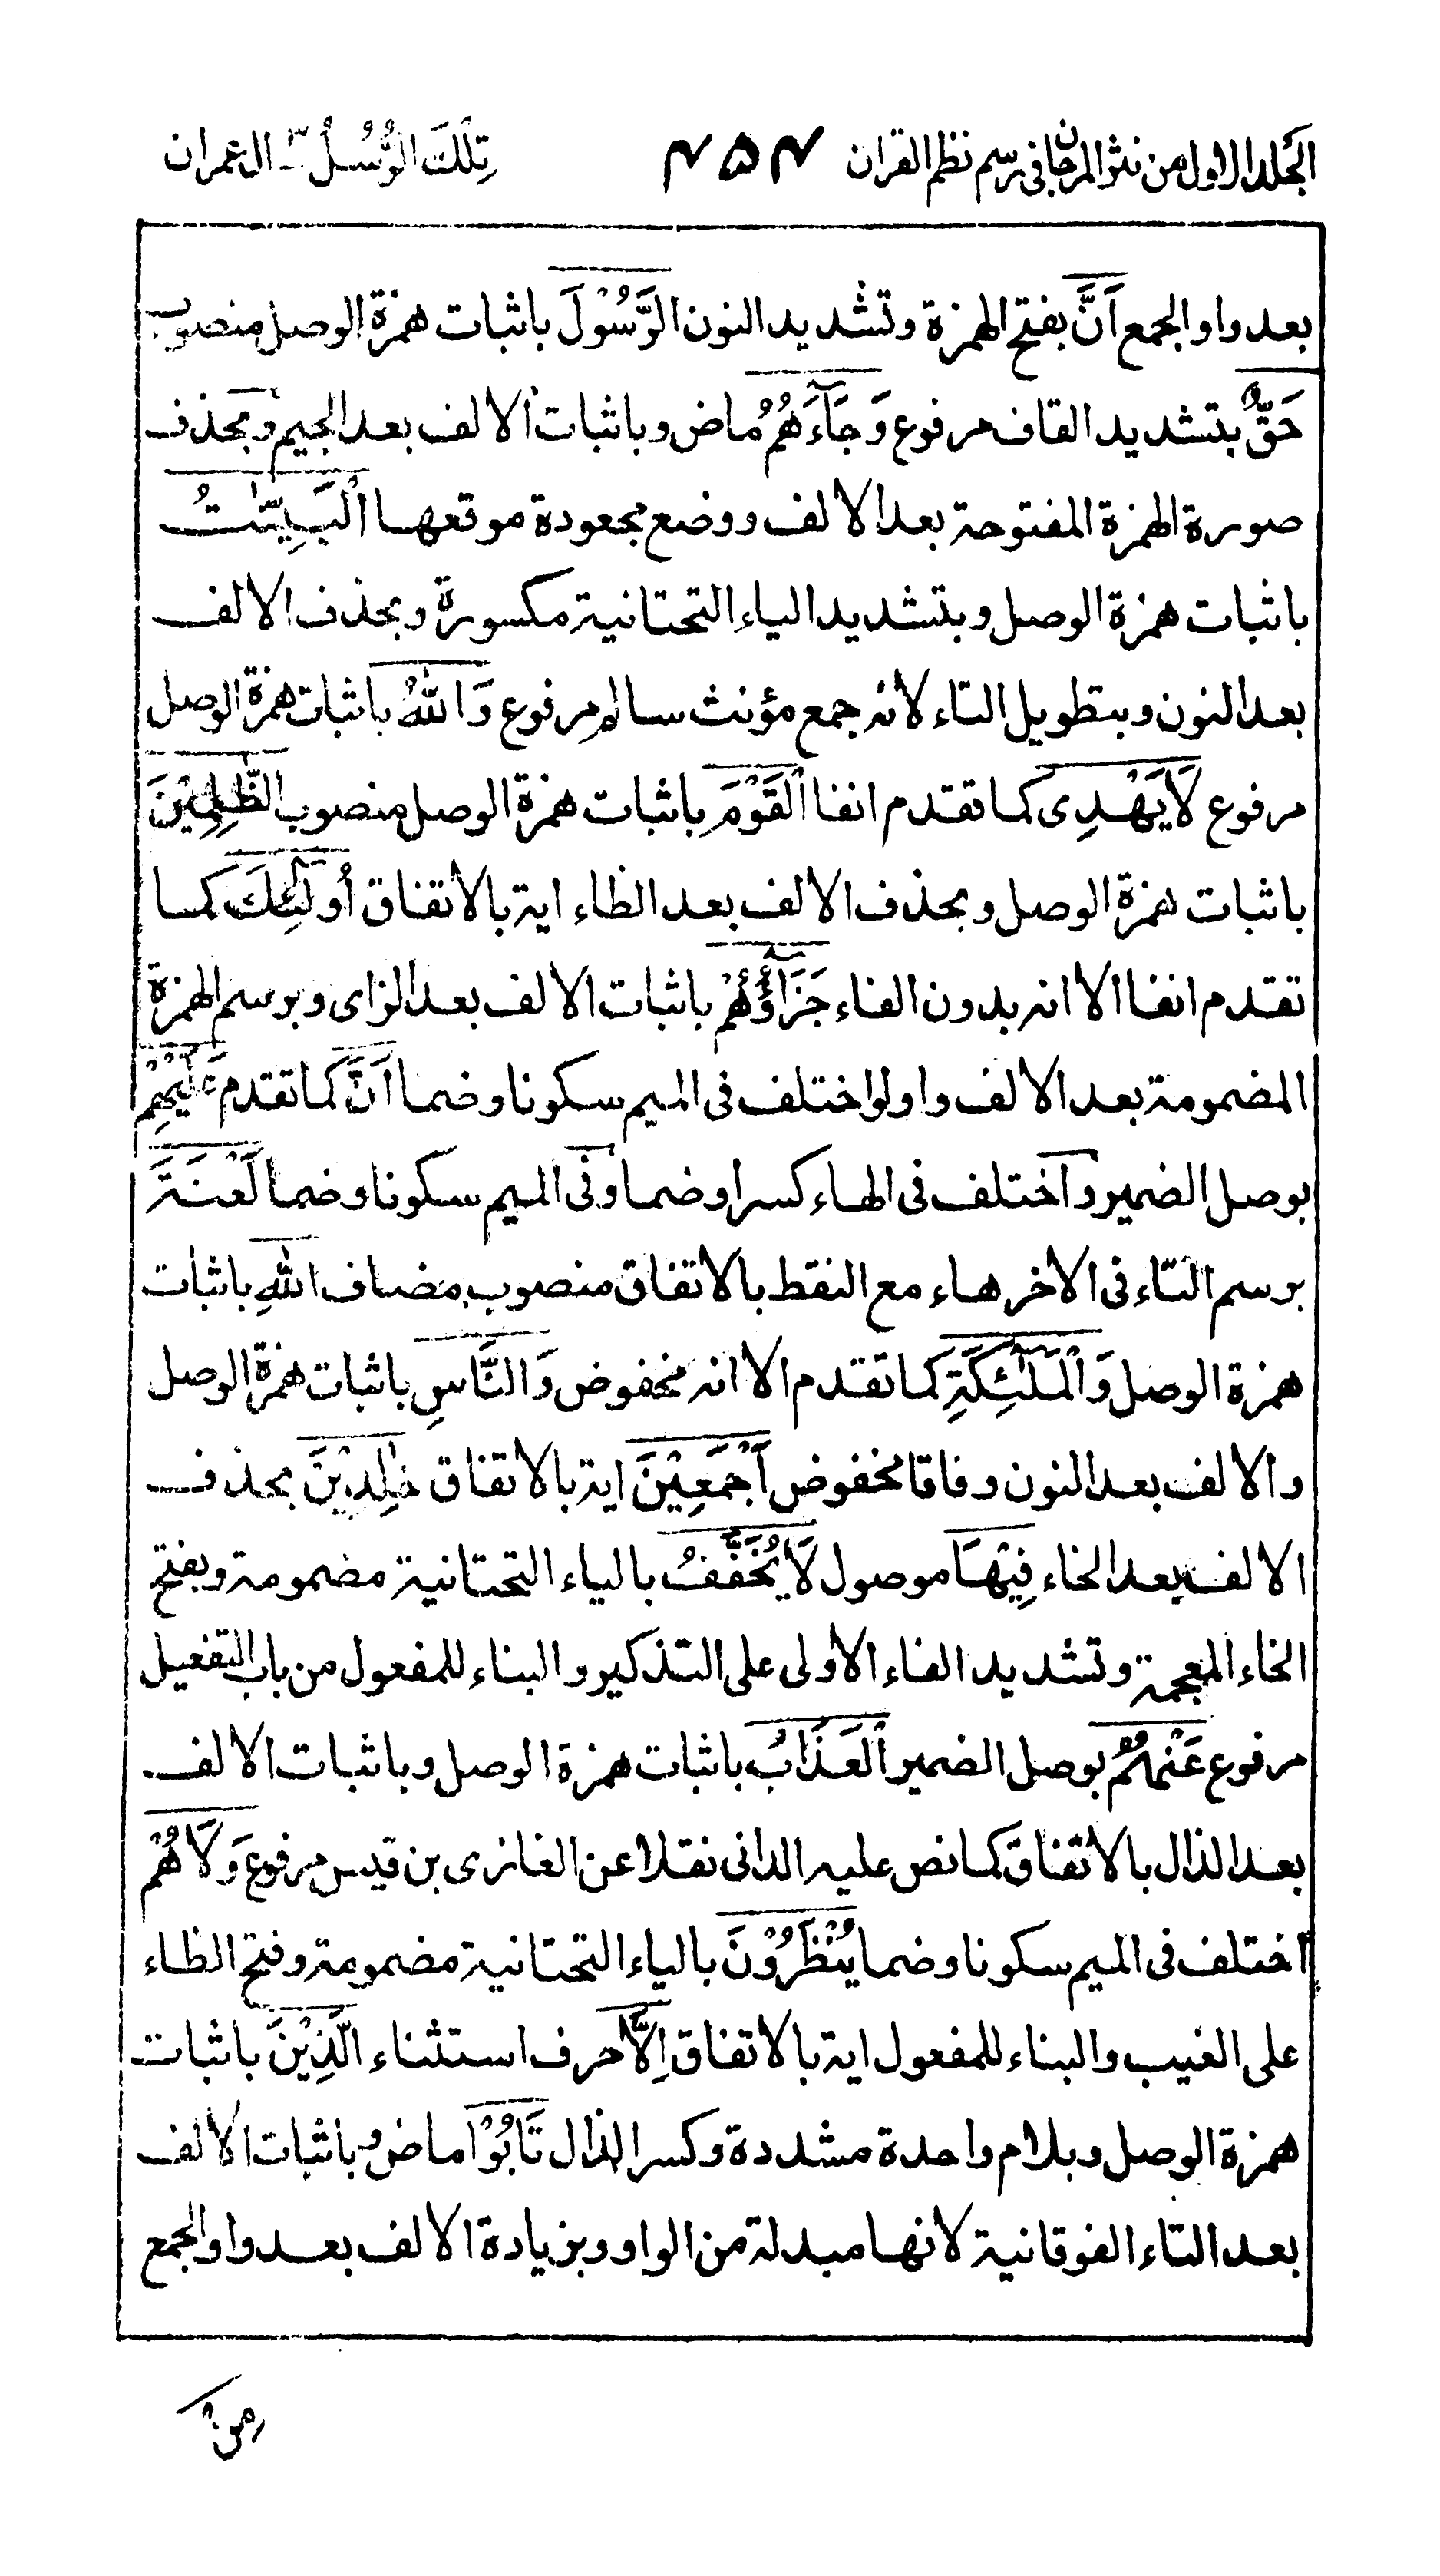 الجلد الاول من نثر المرجان فی رسم نظم القران ۴۵۴ تِلْكَ الرُّسُلُ ۳ - ال عمران
بعد واو الجمع اَنَّ بفتح الهمزة وتشديد النون الرَّسُوْلَ باثبات همزة الوصل منصوب
حَقٌّ بتشديد القاف مرفوع وَجَآءَهُمُ ماض وباثبات الالف بعد الجيم وبحذف
صورة الهمزة المفتوحة بعد الالف ووضع مجعودة موقعها الْبَيِّنٰتُ
باثبات همزة الوصل وبتشديد الياء التحتانية مكسورة وبحذف الالف
بعد النون وبتطويل التاء لانه جمع مؤنث سالم مرفوع وَاللّٰهُ باثبات همزة الوصل
مرفوع لَا يَهْدِى كما تقدم انفا الْقَوْمَ باثبات همزة الوصل منصوب الظّٰلِمِيْنَ
باثبات همزة الوصل وبحذف الالف بعد الظاء اية بالاتفاق اُولٰٓئِكَ كما
تقدم انفا الا انه بدون الفاء جَزَآؤُهُمْ باثبات الالف بعد الزاى وبرسم الهمزة
المضمومة بعد الالف واوا واختلف فى الميم سكونا وضما اَنَّ كما تقدم عَلَيْهِمْ
بوصل الضمير واختلف فى الهاء كسرا وضما وفى الميم سكونا وضما لَعْنَةَ
برسم التاء فى الاخر هاء مع النقط بالاتفاق منصوب مضاف اللّٰهِ باثبات
همزة الوصل وَالْمَلٰٓئِكَةِ كما تقدم الا انه مخفوض وَالنَّاسِ باثبات همزة الوصل
والالف بعد النون وفاقا مخفوض اَجْمَعِيْنَ اية بالاتفاق خٰلِدِيْنَ بحذف
الالف بعد الخاء فِيْهَا موصول لَا يُخَفَّفُ بالياء التحتانية مضمومة وبفتح
الخاء المعجمة وتشديد الفاء الاولى على التذكير والبناء للمفعول من باب التفعيل
مرفوع عَنْهُمُ بوصل الضمير الْعَذَابُ باثبات همزة الوصل وباثبات الالف
بعد الذال بالاتفاق كما نص عليه الدانى نقلا عن الغازى بن قيس مرفوع وَلَا هُمْ
اختلف فى الميم سكونا وضما يُنْظَرُوْنَ بالياء التحتانية مضمومة وفتح الظاء
على الغيب والبناء للمفعول اية بالاتفاق اِلَّا حرف استثناء الَّذِيْنَ باثبات
همزة الوصل وبلام واحدة مشددة وكسر الذال تَابُوْا ماض وباثبات الالف
بعد التاء الفوقانية لانها مبدلة من الواو وبزيادة الالف بعد واو الجمع
مِنْ